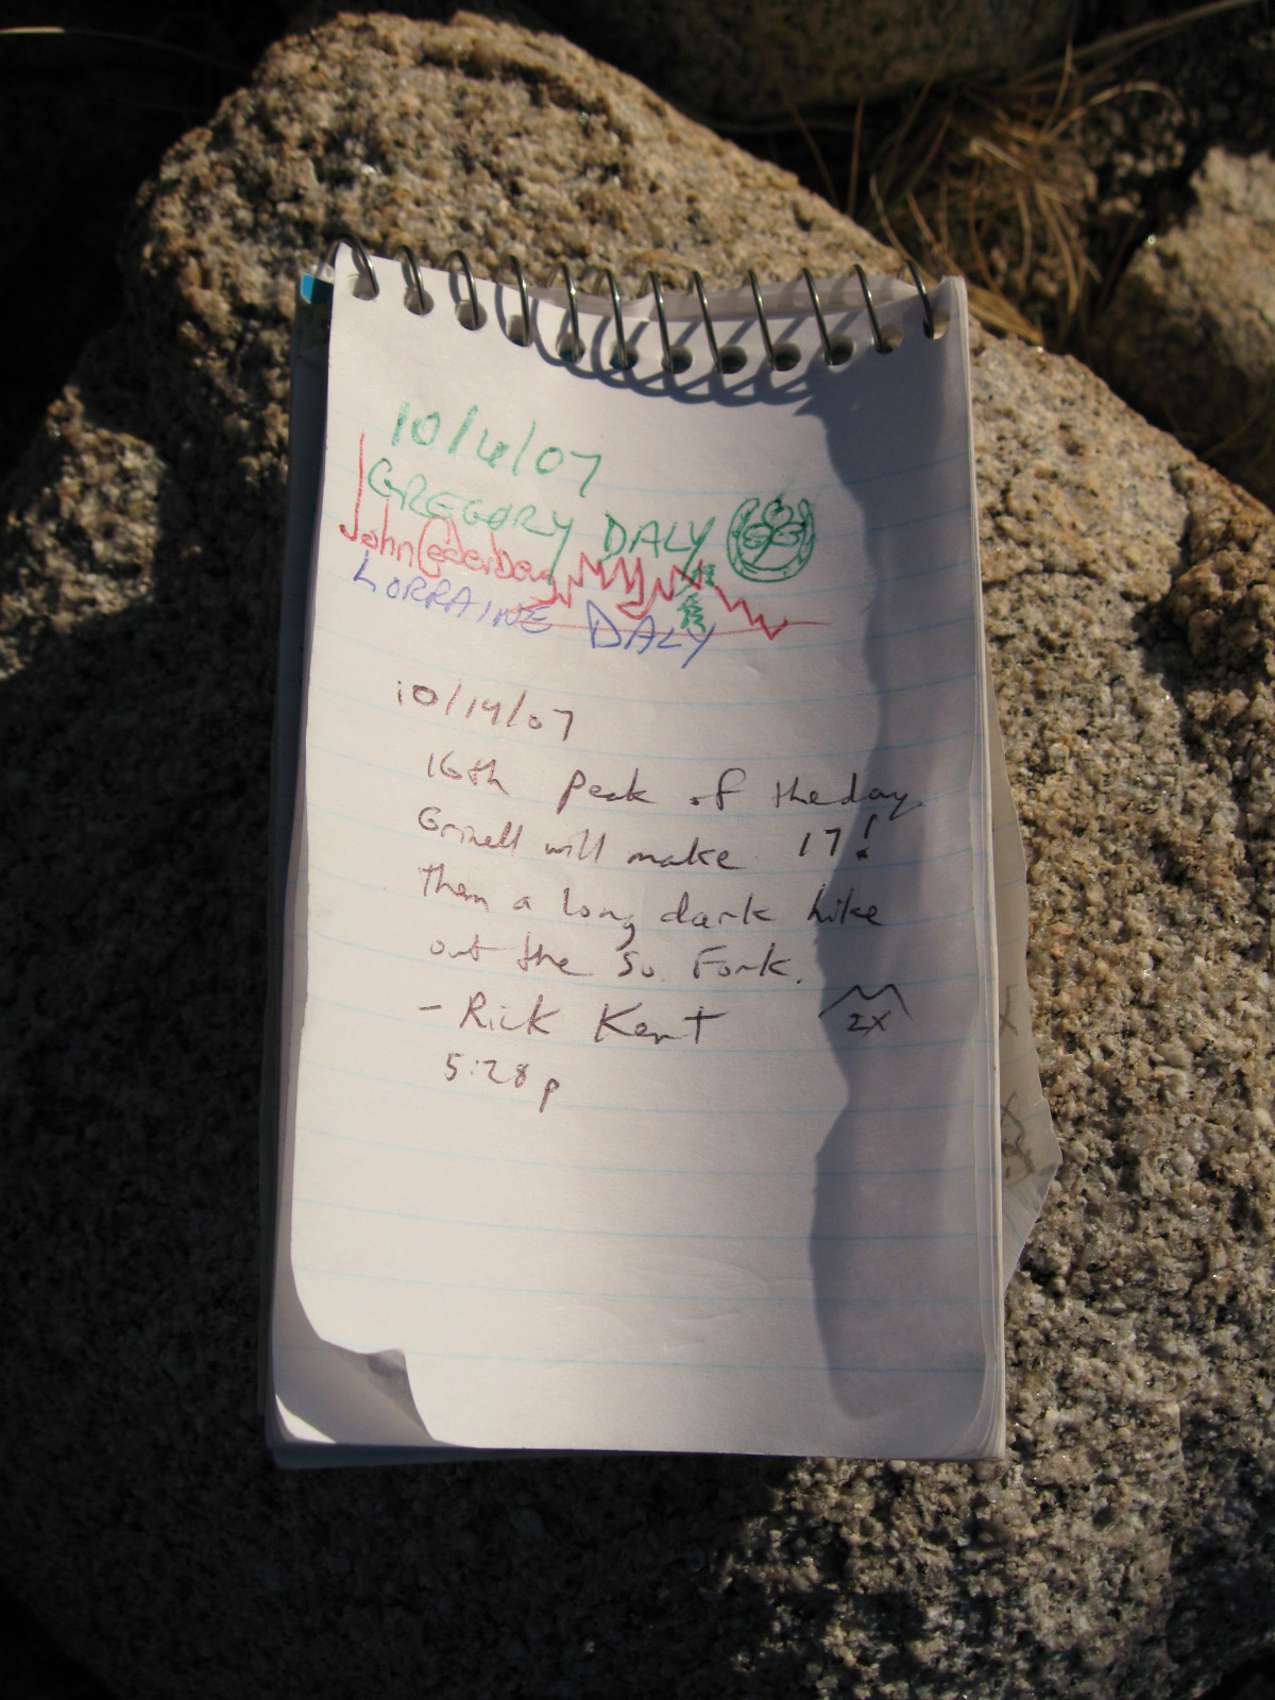 10/6/07
GREGORY DALY
John Cederberg
LORRAINE DALY
10/14/07
16th peak of the day.
Grinell will make 17!
Then a long dark hike
out the So. Fork.
- Rick Kent
2X
5:28p